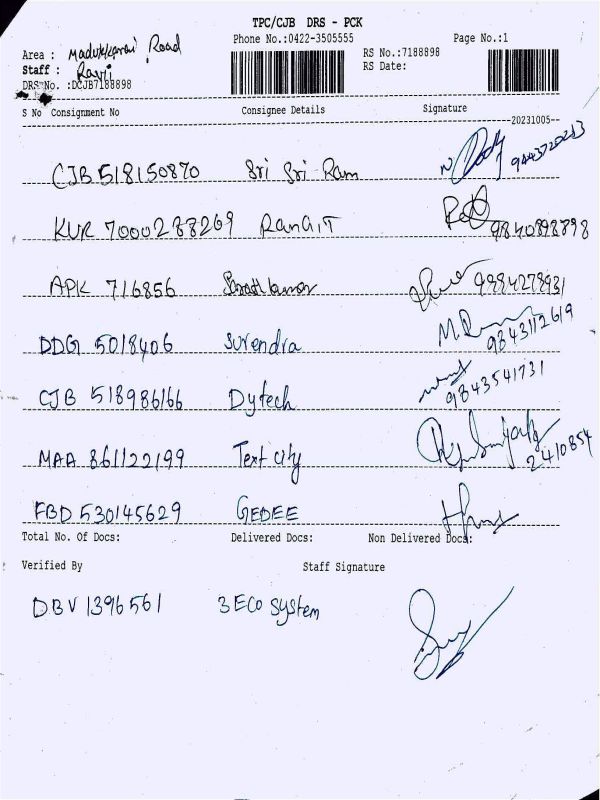 TPC/CJB DRS - PCK
Phone No.:0422-3505555
Page No.:1
Area : Madukkarai Road
RS No.:7188898
Staff : Ravi
RS Date:
DRS No. :DCJB7188898
S No Consignment No Consignee Details Signature
20231005
CJB 518150870 Sri Sri Ram
KUR 7000288269 RANGIT 9840898898
APK 716856 Sarathkumar
DDG 5018406 Surendra 9843112619
CJB 518986166 Dytech 9843541731
MAA 861122199 Text city 2410854
FBD 530145629 GEDEE
Total No. Of Docs: Delivered Docs: Non Delivered Docs:
Verified By Staff Signature
DBV 1396561 3 ECO System